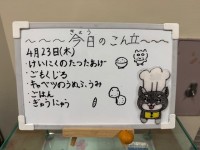 きょう
今日のこん立
4月23日(木)
・けいにくのたつたあげ
・ごもくじる
・キャベツのうめふうみ
・ごはん
・ぎゅうにゅう